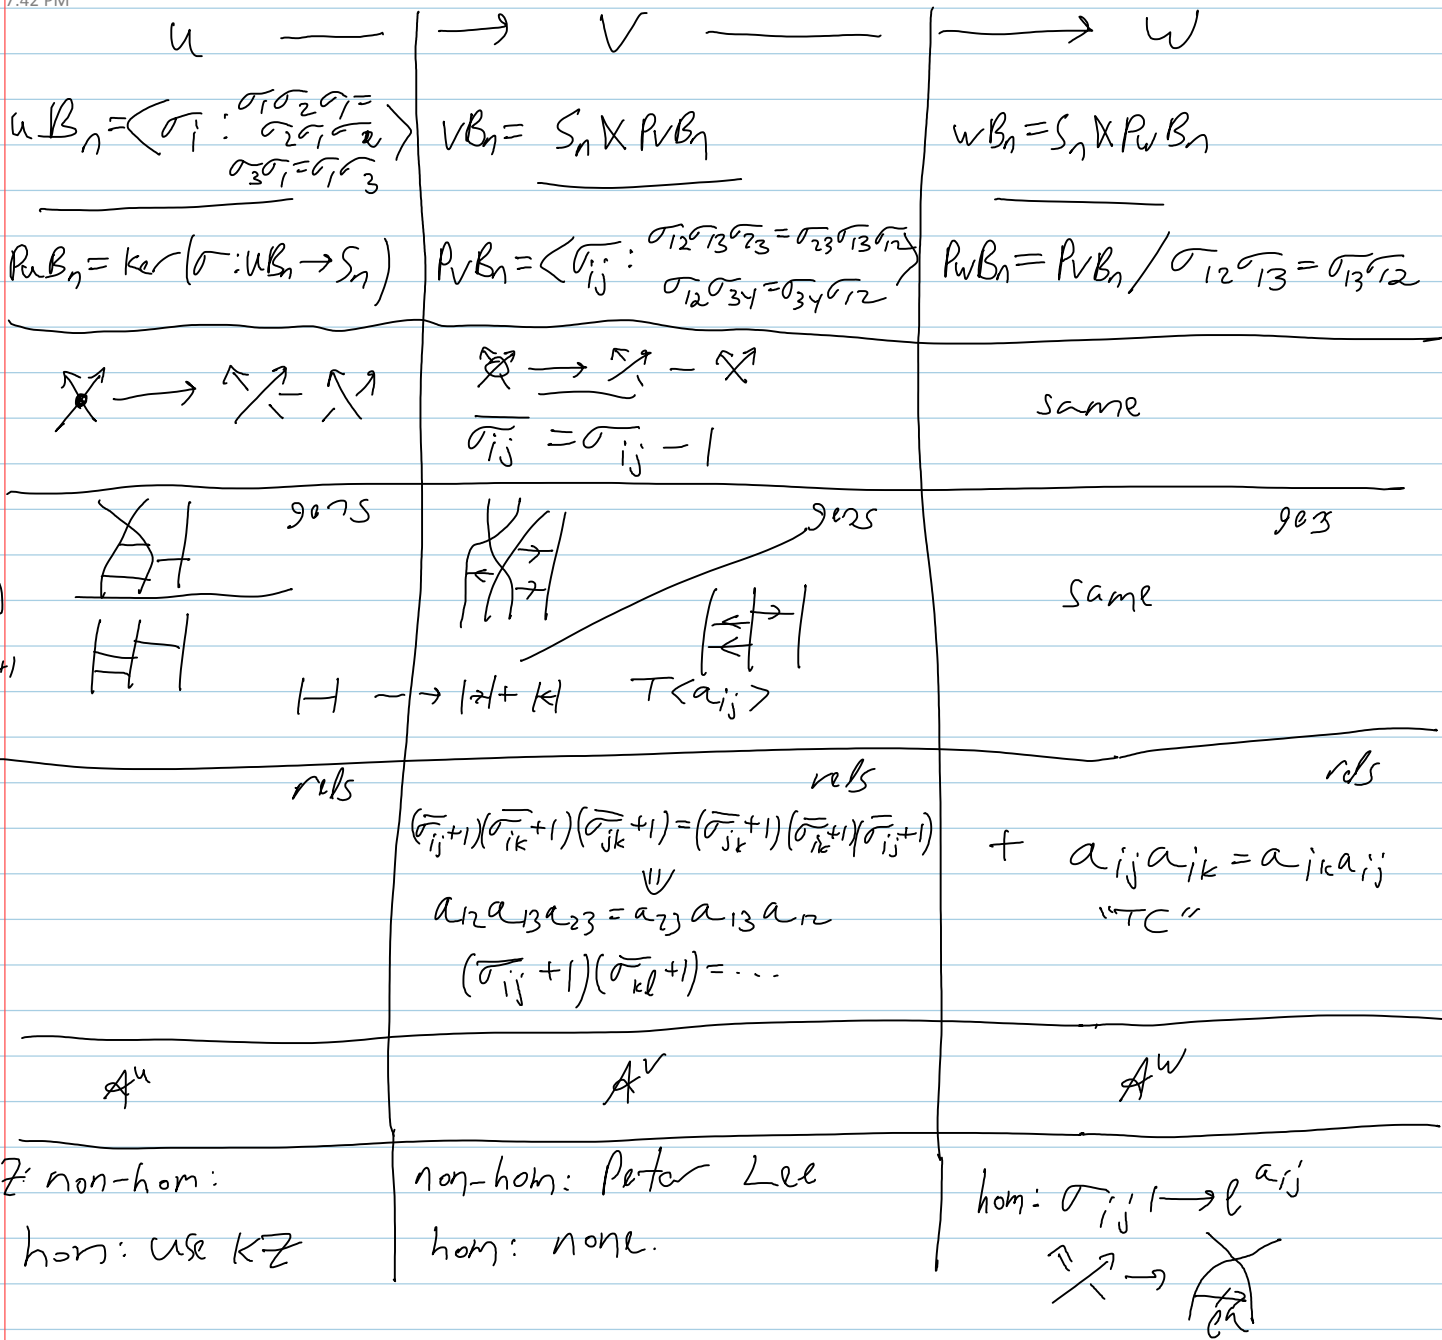 7:42 PM
u → V → W
uB_n = ⟨σ_i : σ_1σ_2σ_1 = σ_2σ_1σ_2
σ_3σ_1 = σ_1σ_3⟩
vB_n = S_n ⋉ PvB_n
wB_n = S_n ⋉ PwB_n
PuB_n = ker(σ: uB_n → S_n)
PvB_n = ⟨σ_ij : σ_12σ_13σ_23 = σ_23σ_13σ_12
σ_12σ_34 = σ_34σ_12⟩
PwB_n = PvB_n / σ_12σ_13 = σ_13σ_12
→ −
→ −
σ̄_ij = σ_ij − 1
same
gens
gens
gez
same
+1)
→ +
T⟨a_ij⟩
rels
rels
rels
(σ̄_ij+1)(σ̄_ik+1)(σ̄_jk+1) = (σ̄_jk+1)(σ̄_ik+1)(σ̄_ij+1)
⇓
a_12 a_13 a_23 = a_23 a_13 a_12
(σ̄_ij+1)(σ̄_kl+1) = ...
+ a_ij a_ik = a_ik a_ij
"TC"
A^u
A^v
A^w
Z: non-hom:
hom: use KZ
non-hom: Peter Lee
hom: none.
hom: σ_ij ↦ e^{a_ij}
→ e^a